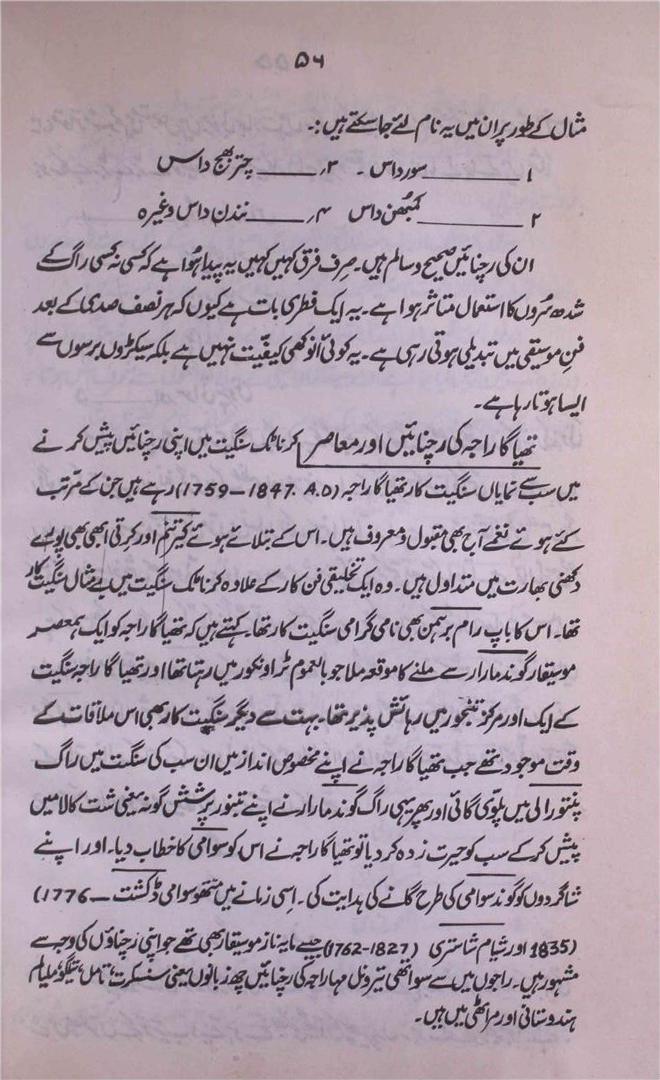 ۵۶
مثال کے طور پر ان میں یہ نام لئے جا سکتے ہیں:۔
۱ـــــــ سورداس ۔ ۳؍ ـــــــ چتر بھج داس
۲ ـــــــ کمبھن داس ۴؍ ـــــــ نندن داس وغیرہ
ان کی رچنائیں صحیح و سالم ہیں۔ صرف فرق کہیں کہیں یہ پیدا ہُوا ہے کہ کسی نہ کسی راگ کے
شدھ سُروں کا استعمال متاثر ہوا ہے۔ یہ ایک فطری بات ہے کیوں کہ ہر نصف صدی کے بعد
فنِ موسیقی میں تبدیلی ہوتی رہی ہے۔ یہ کوئی انوکھی کیفیّت نہیں ہے بلکہ سیکڑوں برسوں سے
ایسا ہوتا رہا ہے۔
تھیاگا راجہ کی رچنائیں اور معاصر کرناٹک سنگیت میں اپنی رچنائیں پیش کرنے
میں سب سے نمایاں سنگیت کار تھیاگا راجہ (1759–1847. A.D) رہے ہیں جن کے مرتب
کئے ہوئے نغمے آج بھی مقبول و معروف ہیں۔ اس کے بتلائے ہوئے کیرتنم اور کرتی ابھی بھی پورے
دکھنی بھارت میں متداول ہیں۔ وہ ایک تخلیقی فن کار کے علاوہ کرناٹک سنگیت میں بے مثال سنگیت کار
تھا۔ اس کا باپ رام برہمن بھی نامی گرامی سنگیت کار تھا۔ کہتے ہیں کہ تھیاگا راجہ کو ایک ہمعصر
موسیقار گوند مارار سے ملنے کا موقعہ ملا جو بالعموم ٹراونکور میں رہتا تھا اور تھیاگا راجہ سنگیت
کے ایک اور مرکز تنجور میں رہائش پذیر تھا۔ بہت سے دیگر سنگیت کار بھی اس ملاقات کے
وقت موجود تھے جب تھیاگا راجہ نے اپنے مخصوص انداز میں ان سب کی سنگت میں راگ
پنتورالی میں پلوّی گائی اور پھر یہی راگ گوند مارار نے اپنے تنبور پر شش گونہ یعنی شت کالا میں
پیش کر کے سب کو حیرت زدہ کر دیا تو تھیاگا راجہ نے اس کو سوامی کا خطاب دیا۔ اور اپنے
شاگردوں کو گوند سوامی کی طرح گانے کی ہدایت کی۔ اِسی زمانے میں متھو سوامی ڈکشت (1776–
1835) اور شیام شاستری (1762-1827) جیسے مایہ ناز موسیقار بھی تھے جو اپنی رچناؤں کی وجہ سے
مشہور ہیں۔ راجوں میں سے سواتھی تیرونل مہاراجہ کی رچنائیں چھ زبانوں یعنی سنسکرت، تامل، تیلگو، ملیالم
ہندوستانی اور مراٹھی میں ہیں۔